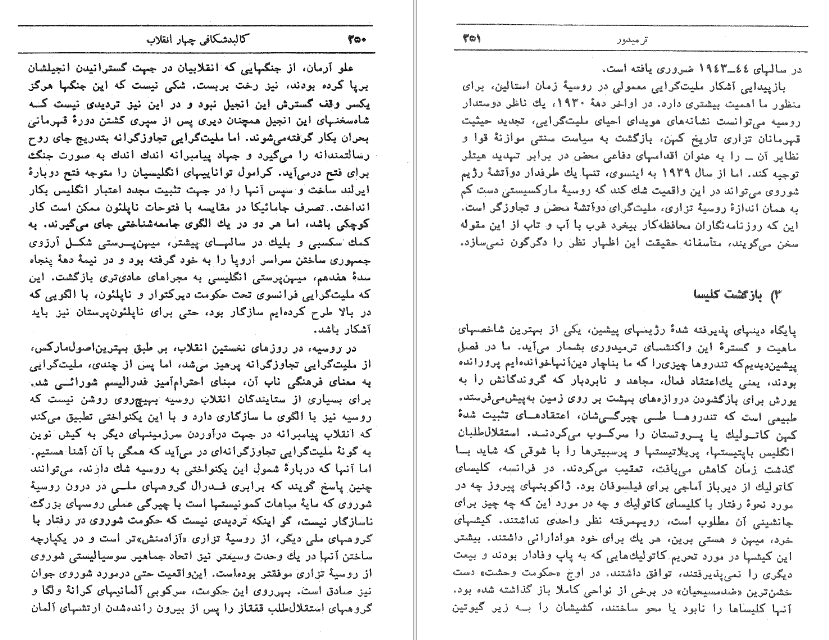 ۲۵۰ کالبدشکافی چهار انقلاب
علو آرمان، از جنگهایی که انقلابیان در جهت گسترانیدن انجیلشان
برپا کرده بودند، نیز رخت بربست. شکی نیست که این جنگها هرگز
یکسر وقف گسترش این انجیل نبود و در این نیز تردیدی نیست که
شاه‌سخنهای این انجیل همچنان دیری پس از سپری گشتن دورهٔ قهرمانی
بحران بکار گرفته‌می‌شوند. اما ملیت‌گرایی تجاوزگرانه بتدریج جای روح
رسالتمندانه را می‌گیرد و جهاد پیامبرانه اندك اندك به صورت جنگ
برای فتح درمی‌آید. کرامول تواناییهای انگلیسیان را متوجه فتح دوبارهٔ
ایرلند ساخت و سپس آنها را در جهت تثبیت مجدد اعتبار انگلیس بکار
انداخت. تصرف جامائیکا در مقایسه با فتوحات ناپلئون ممکن است کار
کوچکی باشد، اما هر دو در یك الگوی جامعه‌شناختی جای می‌گیرند. به
کمك سکسبی و بلیك در سالهای پیشتر، میهن‌پرستی شکل آرزوی
جمهوری ساختن سراسر اروپا را به خود گرفته بود و در نیمهٔ دههٔ پنجاه
سدهٔ هفدهم، میهن‌پرستی انگلیسی به مجراهای عادی‌تری بازگشت. این
که ملیت‌گرایی فرانسوی تحت حکومت دیرکتوار و ناپلئون، با الگویی که
در بالا طرح کرده‌ایم سازگار بود، حتی برای ناپلئون‌پرستان نیز باید
آشکار باشد.
در روسیه، در روزهای نخستین انقلاب، بر طبق بهترین‌اصول‌مارکس،
از ملیت‌گرایی تجاوزگرانه پرهیز می‌شد، اما پس از چندی، ملیت‌گرایی
به معنای فرهنگی ناب آن، مبنای احترام‌آمیز فدرالیسم شورائی شد.
برای بسیاری از ستایندگان انقلاب روسیه بهیچ‌روی روشن نیست که
روسیه نیز با الگوی ما سازگاری دارد و با این یکنواختی تطبیق می‌کند
که انقلاب پیامبرانه در جهت درآوردن سرزمینهای دیگر به کیش نوین
به گونهٔ ملیت‌گرایی تجاوزگرانه‌ای در می‌آید که همگی با آن آشنا هستیم.
اما آنها که دربارهٔ شمول این یکنواختی به روسیه شك دارند، می‌توانند
چنین پاسخ گویند که برابری فدرال گروههای ملی در درون روسیهٔ
شوروی که مایهٔ مباهات کمونیستها است با چیرگی عملی روسهای بزرگ
ناسازگار نیست، گو اینکه تردیدی نیست که حکومت شوروی در رفتار با
گروههای ملی دیگر، از روسیهٔ تزاری «آزادمنش»تر است و در یکپارچه
ساختن آنها در یك وحدت وسیعتر نیز اتحاد جماهیر سوسیالیستی شوروی
از روسیهٔ تزاری موفقتر بوده‌است. این‌واقعیت حتی درمورد شوروی جوان
نیز صادق است. بهرروی این حکومت، سرکوبی آلمانیهای کرانهٔ ولگا و
گروههای استقلال‌طلب قفقاز را پس از بیرون رانده‌شدن ارتشهای آلمان
ترمیدور ۲۵۱
در سالهای ۴۴ـ۱۹۴۳ ضروری یافته است.
بازپیدایی آشکار ملیت‌گرایی معمولی در روسیهٔ زمان استالین، برای
منظور ما اهمیت بیشتری دارد. در اواخر دههٔ ۱۹۳۰، یك ناظر دوستدار
روسیه می‌توانست نشانه‌های هویدای احیای ملیت‌گرایی، تجدید حیثیت
قهرمانان تزاری تاریخ کهن، بازگشت به سیاست سنتی موازنهٔ قوا و
نظایر آن ـ را به عنوان اقدامهای دفاعی محض در برابر تهدید هیتلر
توجیه کند. اما از سال ۱۹۳۹ به اینسوی، تنها یك طرفدار دوآتشهٔ رژیم
شوروی می‌تواند در این واقعیت شك کند که روسیهٔ مارکسیستی دست کم
به همان اندازهٔ روسیهٔ تزاری، ملیت‌گرای دوآتشهٔ محض و تجاوزگر است.
این که روزنامه‌نگاران محافظه‌کار بیخرد غرب با آب و تاب از این مقوله
سخن می‌گویند، متأسفانه حقیقت این اظهار نظر را دگرگون نمی‌سازد.
۳) بازگشت کلیسا
پایگاه دینهای پذیرفته شدهٔ رژیمهای پیشین، یکی از بهترین شاخصهای
ماهیت و گسترهٔ این واکنشهای ترمیدوری بشمار می‌آید. ما در فصل
پیشین‌دیدیم‌که تندروها چیزی‌را که ما بناچار دین‌آنهاخوانده‌ایم پرورانده
بودند، یعنی یك‌اعتقاد فعال، مجاهد و نابردبار که گروندگانش را به
یورش برای بازگشودن دروازه‌های بهشت بر روی زمین به‌پیش‌می‌فرستد.
طبیعی است که تندروها طی چیرگی‌شان، اعتقادهای تثبیت شدهٔ
کهن کاتولیك یا پروتستان را سرکوب می‌کردند. استقلال‌طلبان
انگلیس باپتیستها، پریلاتیستها و پرسبیترها را با شوقی که شاید با
گذشت زمان کاهش می‌یافت، تعقیب می‌کردند. در فرانسه، کلیسای
کاتولیك از دیرباز آماجی برای فیلسوفان بود. ژاکوبنهای پیروز چه در
مورد نحوهٔ رفتار با کلیسای کاتولیك و چه در مورد این که چه چیز برای
جانشینی آن مطلوب است، رویهمرفته نظر واحدی نداشتند. کیشهای
خرد، میهن و هستی برین، هر یك برای خود هوادارانی داشتند. بیشتر
این کیشها در مورد تحریم کاتولیك‌هایی که به پاپ وفادار بودند و بیعت
دیگری را نمی‌پذیرفتند، توافق داشتند. در اوج «حکومت وحشت» دست
خشن‌ترین «ضدمسیحیان» در برخی از نواحی کاملا باز گذاشته شده بود.
آنها کلیساها را نابود یا محو ساختند، کشیشان را به زیر گیوتین